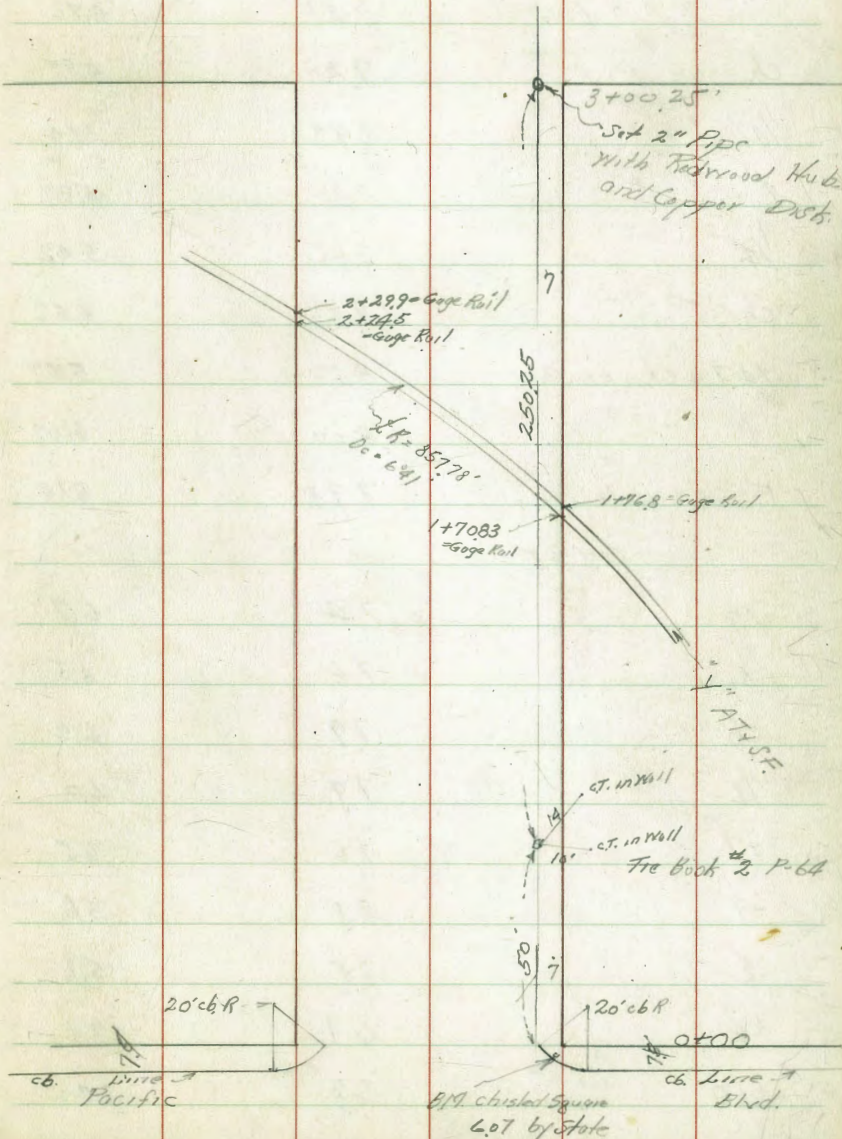 3+00.25'
Set 2" Pipe
With Redwood Hub
and Copper Disk.
7
2+29.9 = Gage Rail
2+24.5
= Gage Rail
250.25
R = 857.78'
Dc = 6°41'
1+76.8 = Gage Rail
1+70.83
= Gage Rail
"L"
AT&S.F.
c.T. in Wall
14
c.T. in Wall
10'
Tie Book #2 P-64
50'
7
20' cb. R
20' cb R
0+00
cb. Line
Pacific
cb. Line
Blvd.
B.M. chisled Square
6.07 by State